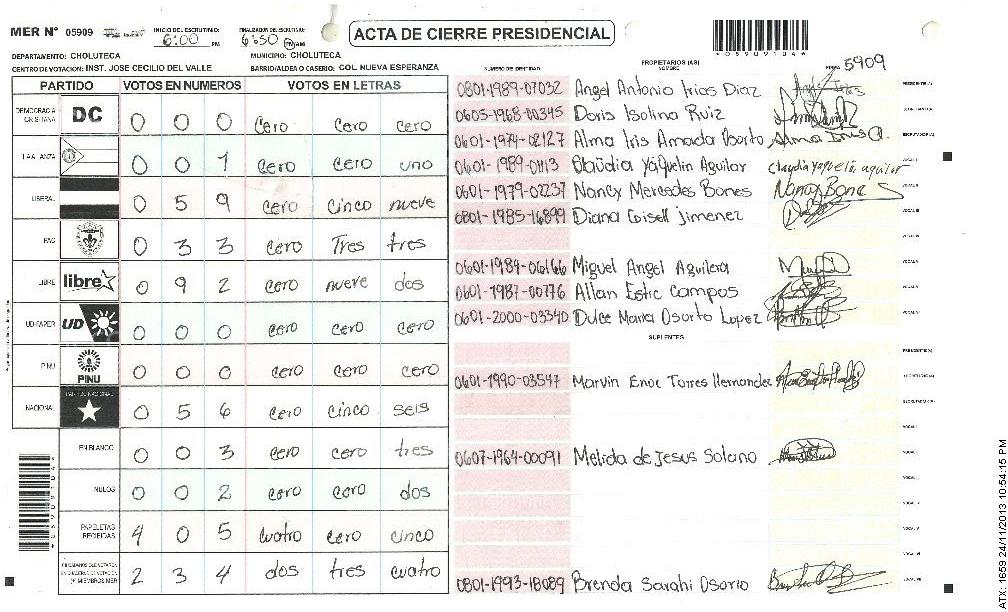 MER N° 05909 INICIO DEL ESCRUTINIO: 6:00 PM FINALIZACION DEL ESCRUTINIO: 6:50 PM/AM ACTA DE CIERRE PRESIDENCIAL
DEPARTAMENTO: CHOLUTECA MUNICIPIO: CHOLUTECA
CENTRO DE VOTACION: INST. JOSE CECILIO DEL VALLE BARRIO/ALDEA O CASERIO: COL. NUEVA ESPERANZA
5909
PARTIDO VOTOS EN NUMEROS VOTOS EN LETRAS
DEMOCRACIA CRISTIANA DC 0 0 0 cero cero cero
LA ALIANZA 0 0 1 cero cero uno
LIBERAL 0 5 9 cero cinco nueve
PAC 0 3 3 cero Tres tres
LIBRE libre 0 9 2 cero nueve dos
UD-FAPER UD 0 0 0 cero cero cero
PINU PINU 0 0 0 cero cero cero
NACIONAL PARTIDO NACIONAL 0 5 6 cero cinco seis
EN BLANCO 0 0 3 cero cero tres
NULOS 0 0 2 cero cero dos
PAPELETAS RECIBIDAS 4 0 5 cuatro cero cinco
CIUDADANOS QUE VOTARON 2 3 4 dos tres cuatro
(+ MIEMBROS MER)
NUMERO DE IDENTIDAD PROPIETARIOS (AS) NOMBRE FIRMA
0801-1989-07032 Angel Antonio Irias Diaz PRESIDENTE(A)
0605-1968-00345 Doris Isolina Ruiz SECRETARIO(A)
0601-1974-02127 Alma Iris Amada Osorto ESCRUTADOR(A)
0601-1989-01113 Claudia Yaquelin Aguilar Claudia Yaquelin aguilar VOCAL I
0601-1979-02237 Nancy Mercedes Bones Nancy Bones VOCAL II
0801-1985-16899 Diana Goisell jimenez VOCAL III
0601-1989-06166 Miguel Angel Aguilera
0601-1987-00776 Allan Estic Campos
0601-2000-03340 Dulce Maria Osorto Lopez
SUPLENTES
PRESIDENTE(A)
0601-1990-03547 Marvin Enoc Torres Hernandez SECRETARIO(A)
0607-1964-00091 Melida de Jesus Solano VOCAL
0801-1993-18089 Brenda Sarahi Osorio
ATX 1659 24/11/2013 10:54:15 PM